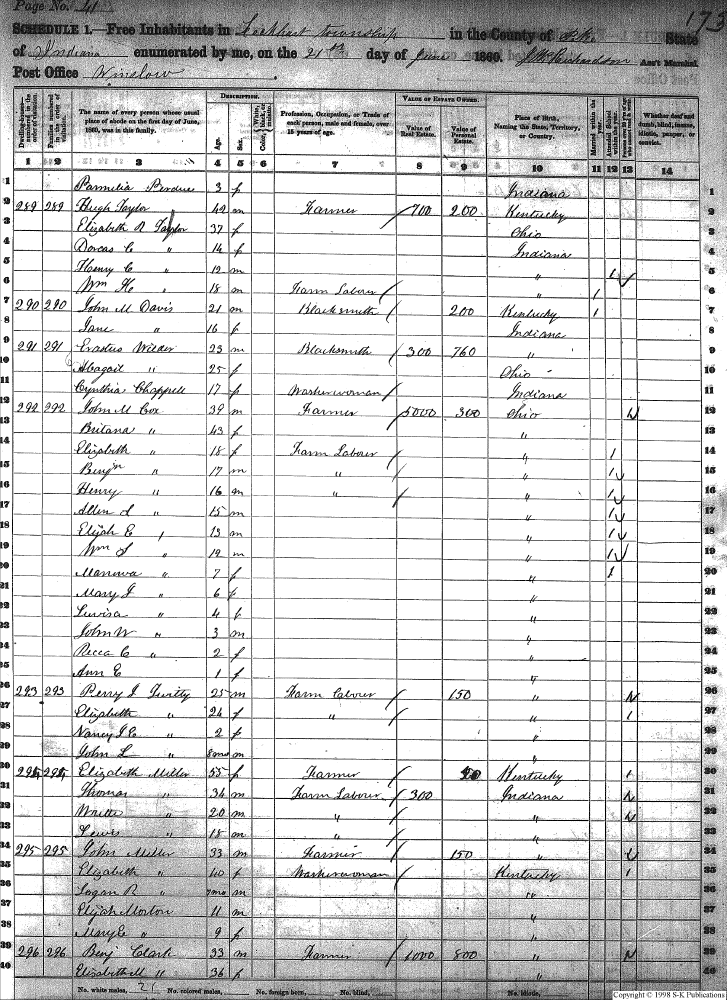 Page No. 41
173
SCHEDULE 1.—Free Inhabitants in Lockhart township in the County of Pike State
of Indiana enumerated by me, on the 21th day of June 1860. Richardson Ass't Marshal.
Post Office Winslow
Dwelling-houses numbered in the order of visitation. Families numbered in the order of visitation. The name of every person whose usual place of abode on the first day of June, 1860, was in this family. DESCRIPTION. Age. Sex. Color, White, black, or mulatto. Profession, Occupation, or Trade of each person, male and female, over 15 years of age. VALUE OF ESTATE OWNED. Value of Real Estate. Value of Personal Estate. Place of Birth, Naming the State, Territory, or Country. Married within the year. Attended School within the year. Whether deaf and dumb, blind, insane, idiotic, pauper, or convict.
1 2 3 4 5 6 7 8 9 10 11 12 13 14
1 Parmelia Perdue 3 f Indiana 1
2 289 289 Hugh Taylor 42 m Farmer / 700 200 Kentucky 2
3 Elizabeth R Taylor 37 f Ohio 3
4 Dorcas C " 14 f Indiana 4
5 Henry C " 12 m " 1 5
6 Wm H " 18 m Farm Labourer / " 1 6
7 290 290 John M Davis 21 m Blacksmith / 200 Kentucky 1 7
8 Jane " 16 f Indiana 8
9 291 291 Erastus Wilder 23 m Blacksmith / 300 760 " 9
10 Abagail " 25 f Ohio 10
11 Cynthia Chappell 17 f Washerwoman / Indiana 11
12 292 292 John M Cox 39 m Farmer / 5000 300 Ohio 12
13 Britana " 43 f " 13
14 Elizabeth " 18 f Farm Labourer / " 1 14
15 Benjn " 17 m " / " 1 15
16 Henry " 16 m " / " 1 16
17 Allen " 15 m " 1 17
18 Elijah E " 13 m " 1 18
19 Wm " 12 m " 1 19
20 Manerva " 7 f " 1 20
21 Mary J " 6 f " 21
22 Luvisa " 4 f " 22
23 John W " 3 m " 23
24 Recca C " 2 f " 24
25 Ann E " 1 f " 25
26 293 293 Perry J Twitty 25 m Farm Labourer / 150 " 26
27 Elizabeth " 24 f " / " 1 27
28 Nancy J E " 2 f " 28
29 John L " 8mo m " 29
30 294 294 Elizabeth Miller 55 f Farmer / Kentucky 1 30
31 Thomas " 34 m Farm Labourer / 300 Indiana 31
32 " 20 m " / " 32
33 Lewis " 18 m " / " 33
34 295 295 John Miller 33 m Farmer / 150 " 34
35 Elizabeth " 40 f Washerwoman / Kentucky 35
36 Logan R " 7mo m " 36
37 Elijah Morton 11 m " 37
38 Mary E " 9 f " 38
39 296 296 Benj Clark 33 m Farmer / 1000 800 " 39
40 Elizabeth M " 36 f " 40
No. white males, 21 No. colored males, No. foreign born, No. blind, No. idiotic,
Copyright © 1998 S-K Publications